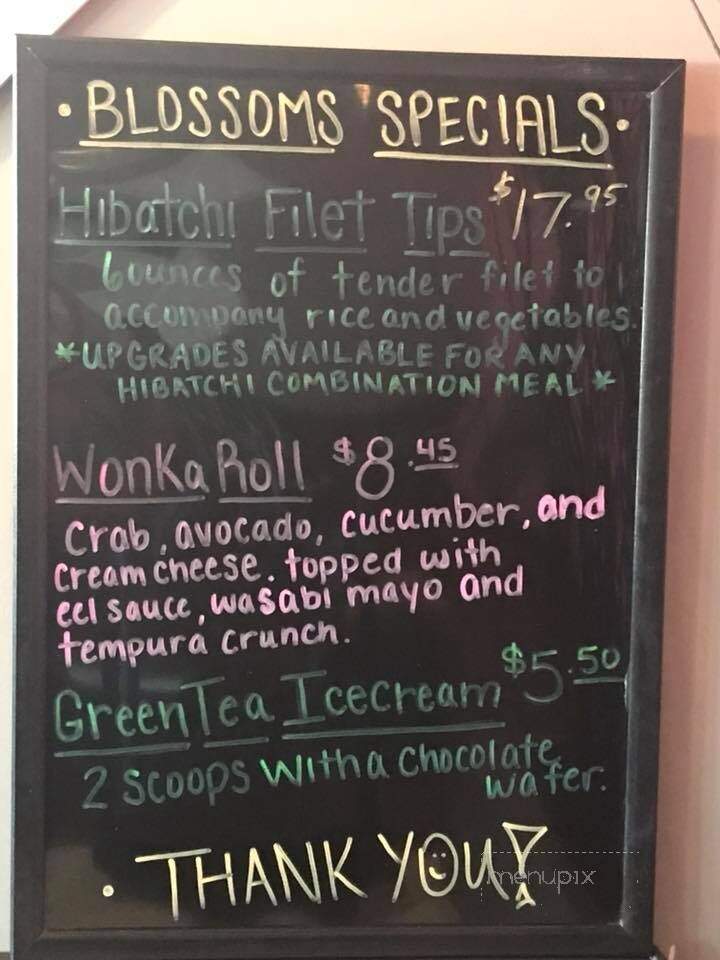 · BLOSSOMS SPECIALS ·
Hibatchi Filet Tips $17.95
6ounces of tender filet to
accompany rice and vegetables.
*UPGRADES AVAILABLE FOR ANY
HIBATCHI COMBINATION MEAL *
Wonka Roll $8.45
Crab, avocado, cucumber, and
cream cheese. topped with
eel sauce, wasabi mayo and
tempura crunch.
Green Tea Icecream $5.50
2 Scoops With a Chocolate
wafer.
· THANK YOU!
menupix